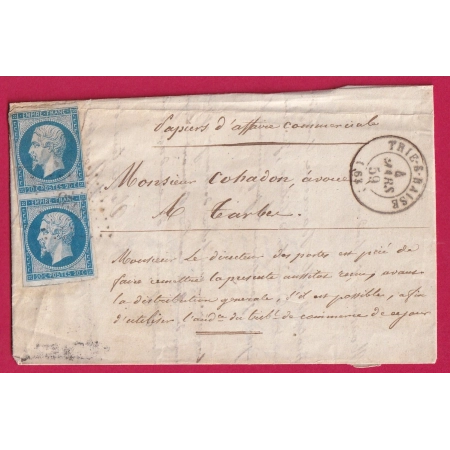 EMPIRE FRANC
20C POSTES 20C
EMPIRE FRANC
20C POSTES 20C
TRIE-S-BAISE
4
MARS
59
Papiers d'affaire commerciale
Monsieur Cohadon, avoué
A Tarbes
Monsieur le directeur des postes est prié de
faire remettre la presente aussitot recue, avant
la distribution generale, s'il est possible, afin
d'utiliser l'aud.ce du trib.l de commerce de ce jour